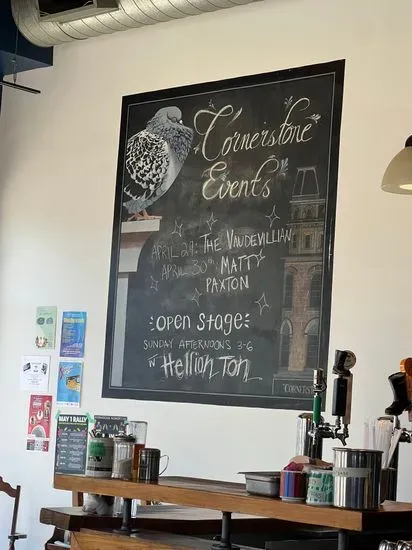 Cornerstone
Events
APRIL 29: THE VAUDEVILLIAN
APRIL 30th MATT
PAXTON
OPEN STAGE
SUNDAY AFTERNOONS 3-6
W Hellion Ton
MAY 1 RALLY